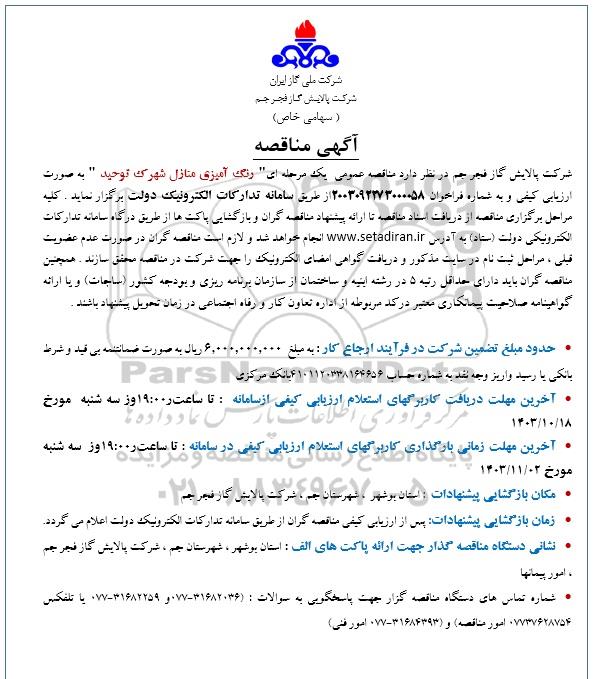 شرکت ملی گاز ایران
شرکت پالایش گاز فجر جم
( سهامی خاص)
آگهی مناقصه
شرکت پالایش گاز فجر جم در نظر دارد مناقصه عمومی یک مرحله ای" رنگ آمیزی منازل شهرک توحید " به صورت
ارزیابی کیفی و به شماره فراخوان ۲۰۰۳۰۹۲۲۷۳۰۰۰۰۵۸از طریق سامانه تدارکات الکترونیک دولت برگزار نماید . کلیه
مراحل برگزاری مناقصه از دریافت اسناد مناقصه تا ارائه پیشنهاد مناقصه گران و بازگشایی پاکت ها از طریق درگاه سامانه تدارکات
الکترونیکی دولت (ستاد) به آدرس www.setadiran.ir انجام خواهد شد و لازم است مناقصه گران در صورت عدم عضویت
قبلی ، مراحل ثبت نام در سایت مذکور و دریافت گواهی امضای الکترونیک را جهت شرکت در مناقصه محقق سازند . همچنین
مناقصه گران باید دارای حداقل رتبه ۵ در رشته ابنیه و ساختمان از سازمان برنامه ریزی و بودجه کشور (ساجات) و یا ارائه
گواهینامه صلاحیت پیمانکاری معتبر درکد مربوطه از اداره تعاون کار و رفاه اجتماعی در زمان تحویل پیشنهاد باشند .
• حدود مبلغ تضمین شرکت در فرآیند ارجاع کار : به مبلغ ۶,۰۰۰,۰۰۰,۰۰۰ ریال به صورت ضمانتنمه بی قید و شرط
بانکی یا رسید واریز وجه نقد به شماره حساب ۴۱۰۱۱۲۰۳۳۸۱۶۴۶۵۶بانک مرکزی
• آخرین مهلت دریافت کاربرگهای استعلام ارزیابی کیفی ازسامانه : تا ساعت۱۹:۰۰روز سه شنبه مورخ
۱۴۰۳/۱۰/۱۸
• آخرین مهلت زمانی بارگذاری کاربرگهای استعلام ارزیابی کیفی در سامانه : تا ساعت۱۹:۰۰روز سه شنبه
مورخ ۱۴۰۳/۱۱/۰۲
• مکان بازگشایی پیشنهادات : استان بوشهر ، شهرستان جم ، شرکت پالایش گاز فجر جم
• زمان بازگشایی پیشنهادات: پس از ارزیابی کیفی مناقصه گران از طریق سامانه تدارکات الکترونیک دولت اعلام می گردد.
• نشانی دستگاه مناقصه گذار جهت ارائه پاکت های الف : استان بوشهر ، شهرستان جم ، شرکت پالایش گاز فجر جم
، امور پیمانها
• شماره تماس های دستگاه مناقصه گزار جهت پاسخگویی به سوالات : (۳۱۶۸۲۰۳۶-۰۷۷و ۳۱۶۸۲۲۵۹-۰۷۷ یا تلفکس
۰۷۷۳۷۶۲۸۷۵۴ امور مناقصه) و (۳۱۶۸۴۳۹۳-۰۷۷ امور فنی)
ParsNamadData
مرکز فرآوری اطلاعات پارس نماد داده ها
پایگاه اطلاع رسانی مناقصه و مزایده
۰۲۱-۸۸۳۴۹۶۷۰-۵